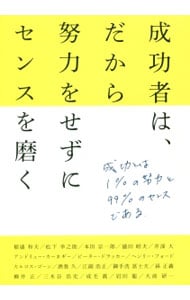 成功者は、
だから
努力をせずに
センスを磨く
成功とは
1%の努力と
99%のセンス
である
稲盛和夫／松下幸之助／本田宗一郎／盛田昭夫／井深大
アンドリュー・カーネギー／ピーター・ドラッカー／ヘンリー・フォード
カルロス・ゴーン／酒巻久／江副浩正／御手洗冨士夫／孫正義
柳井正／三木谷浩史／成毛眞／岩田聡／大前研一